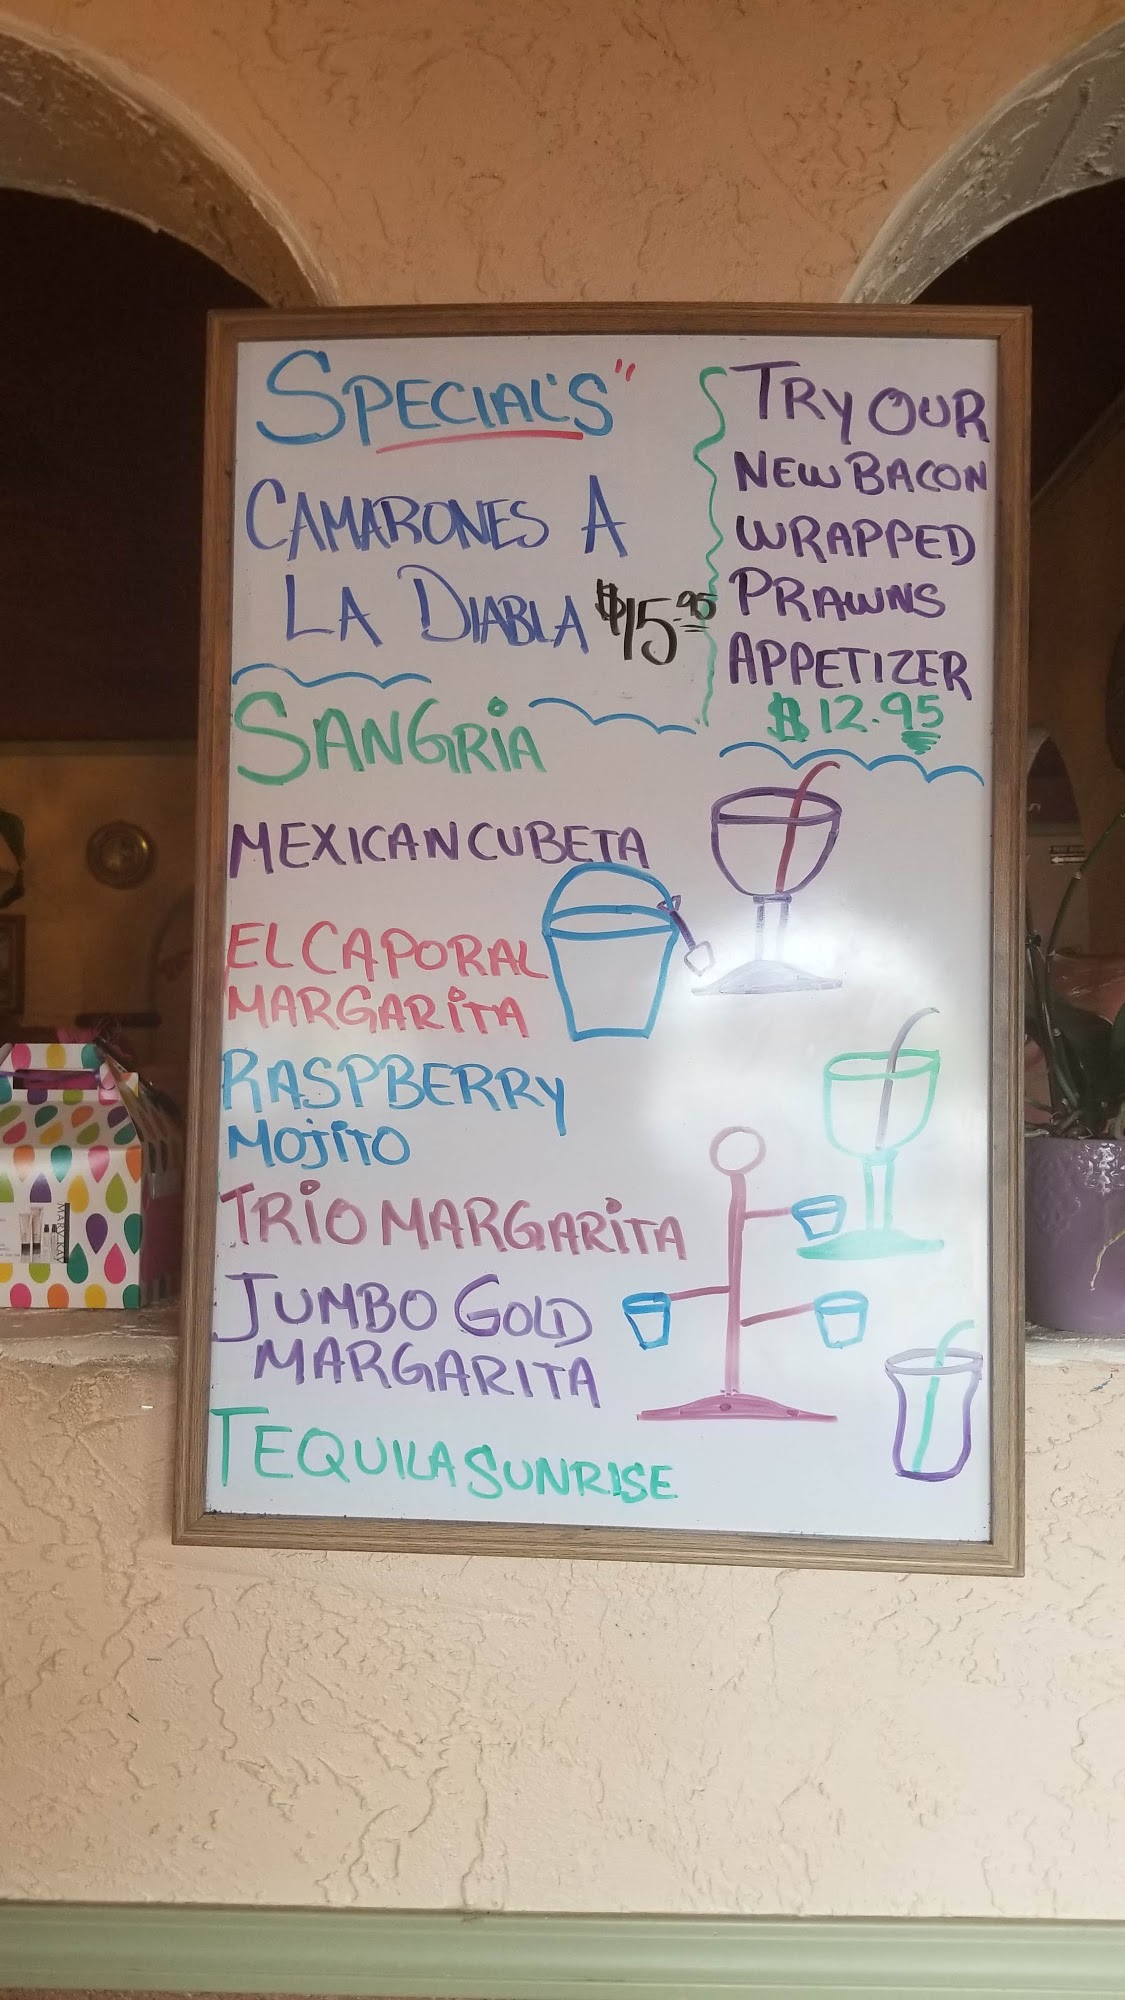 SPECIAL'S"
CAMARONES A
LA DIABLA $15.95
TRY OUR
NEW BACON
WRAPPED
PRAWNS
APPETIZER
$12.95
SANGRIA
MEXICAN CUBETA
EL CAPORAL
MARGARITA
RASPBERRY
MOJITO
TRIO MARGARITA
JUMBO GOLD
MARGARITA
TEQUILA SUNRISE
MARY KAY